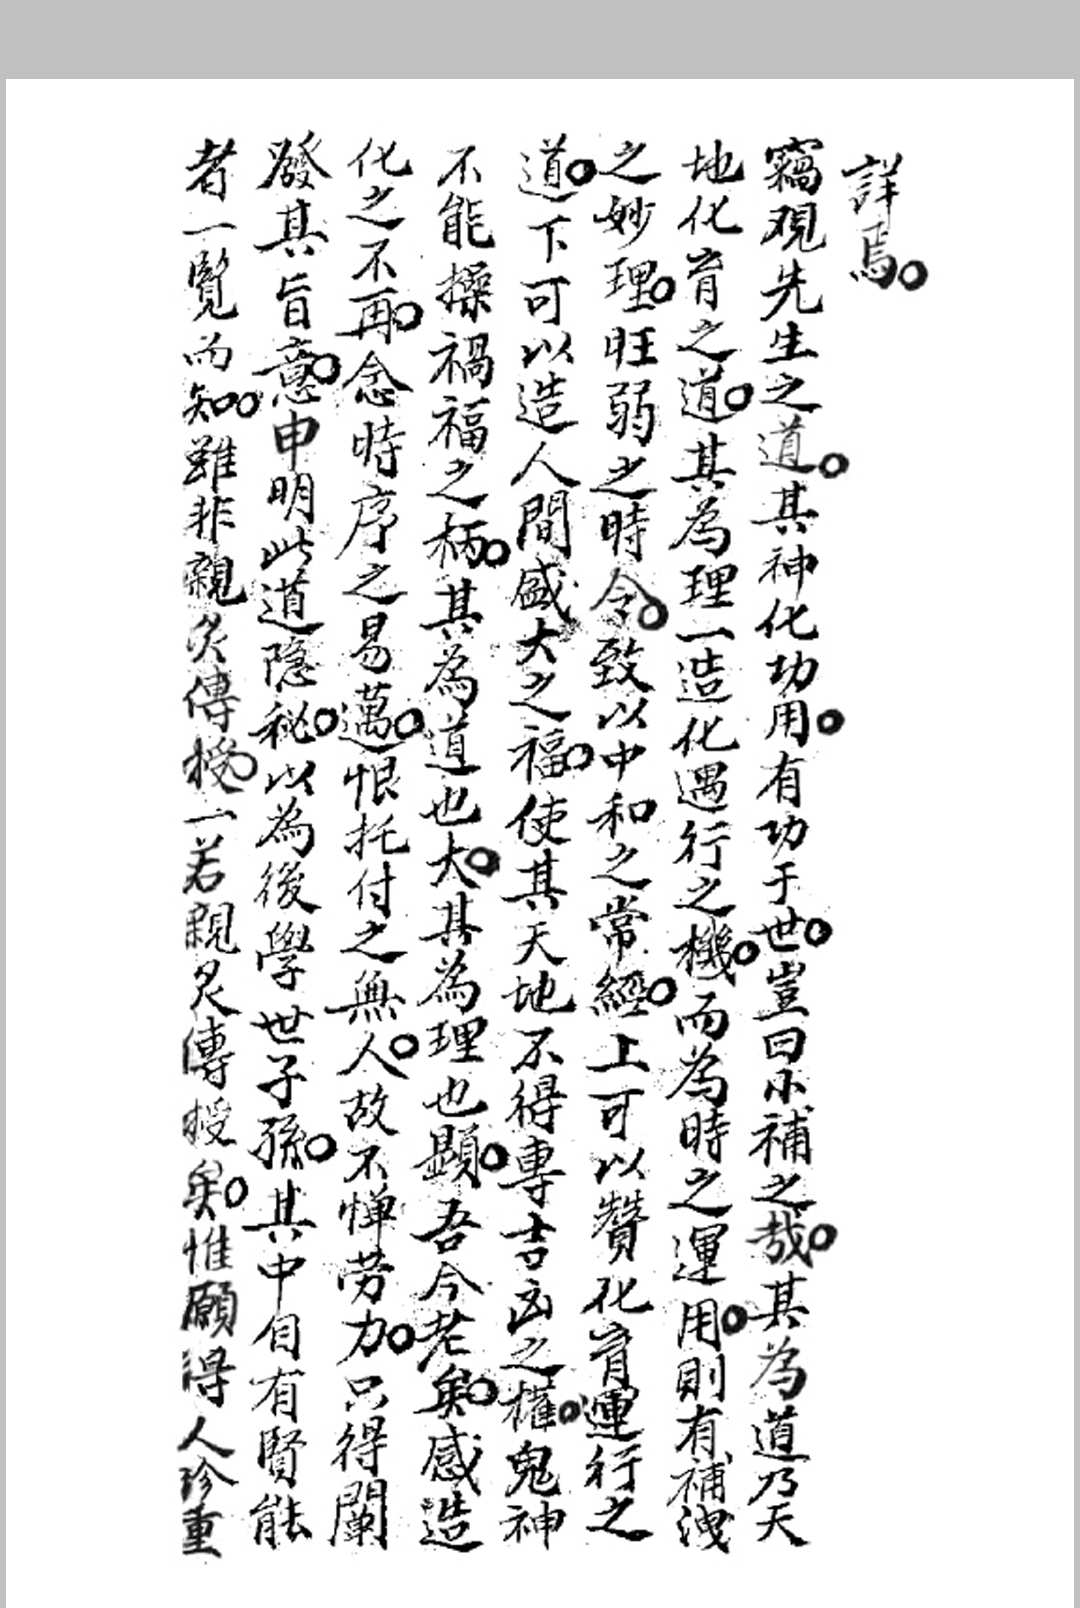 詳焉○
竊覌先生之道○其神化功用○有功于世○豈曰小補之哉○其為道乃天
地化育之道○其為理一造化遇行之機○而為時之運用○則有補洩
之妙理○旺弱之時令○致以中和之常經○上可以贊化育運行之
道○下可以造人間盛大之福○使其天地不得專吉凶之權○鬼神
不能操禍福之柄○其為道也大○其為理也顯○吾今老矣○感造
化之不再○念時序之易邁○恨托付之無人○故不憚劳力○只得闡
發其旨意○申明此道隐秘○以為後學世子孫○其中自有賢能
者一覽而知○雖非親炙傳授○一若親炙傳授矣○惟願得人珍重